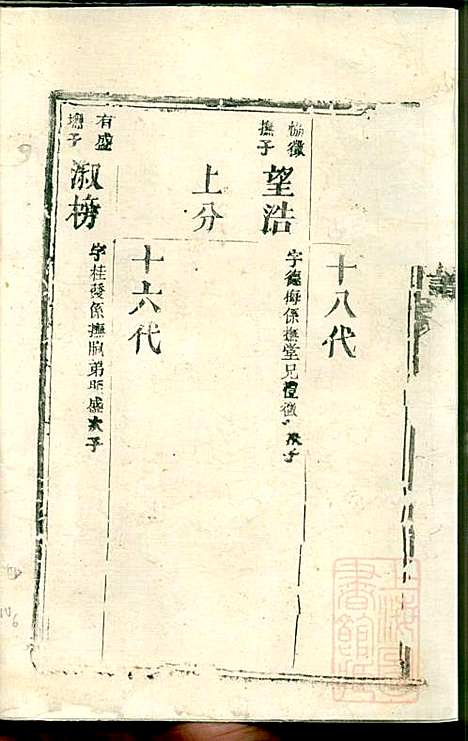 譜
十八代
協徽撫子
望浩 字德梅係撫堂兄禮徽次子
上分
十六代
有盛撫子
淑榜 字桂發係撫胞弟旺盛次子